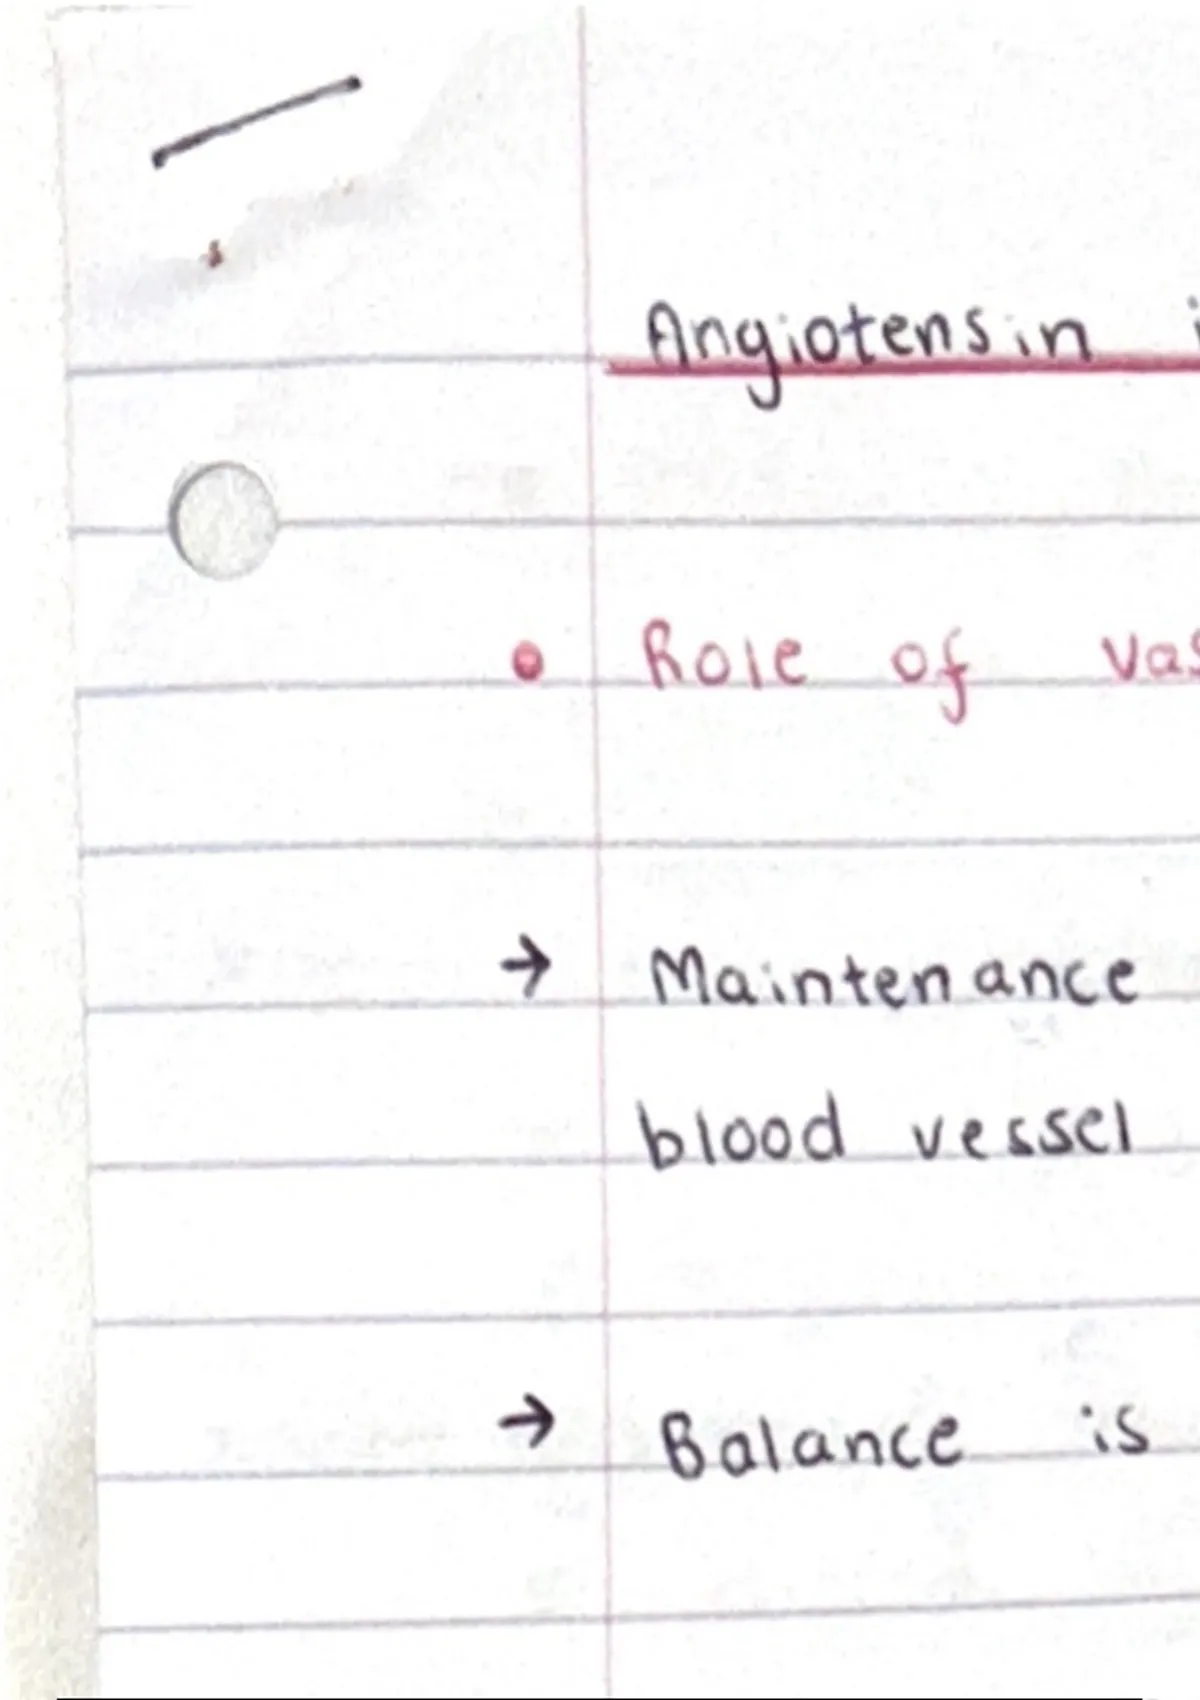 Angiotensin i
• Role of vas
→ Maintenance
blood vessel
→ Balance is